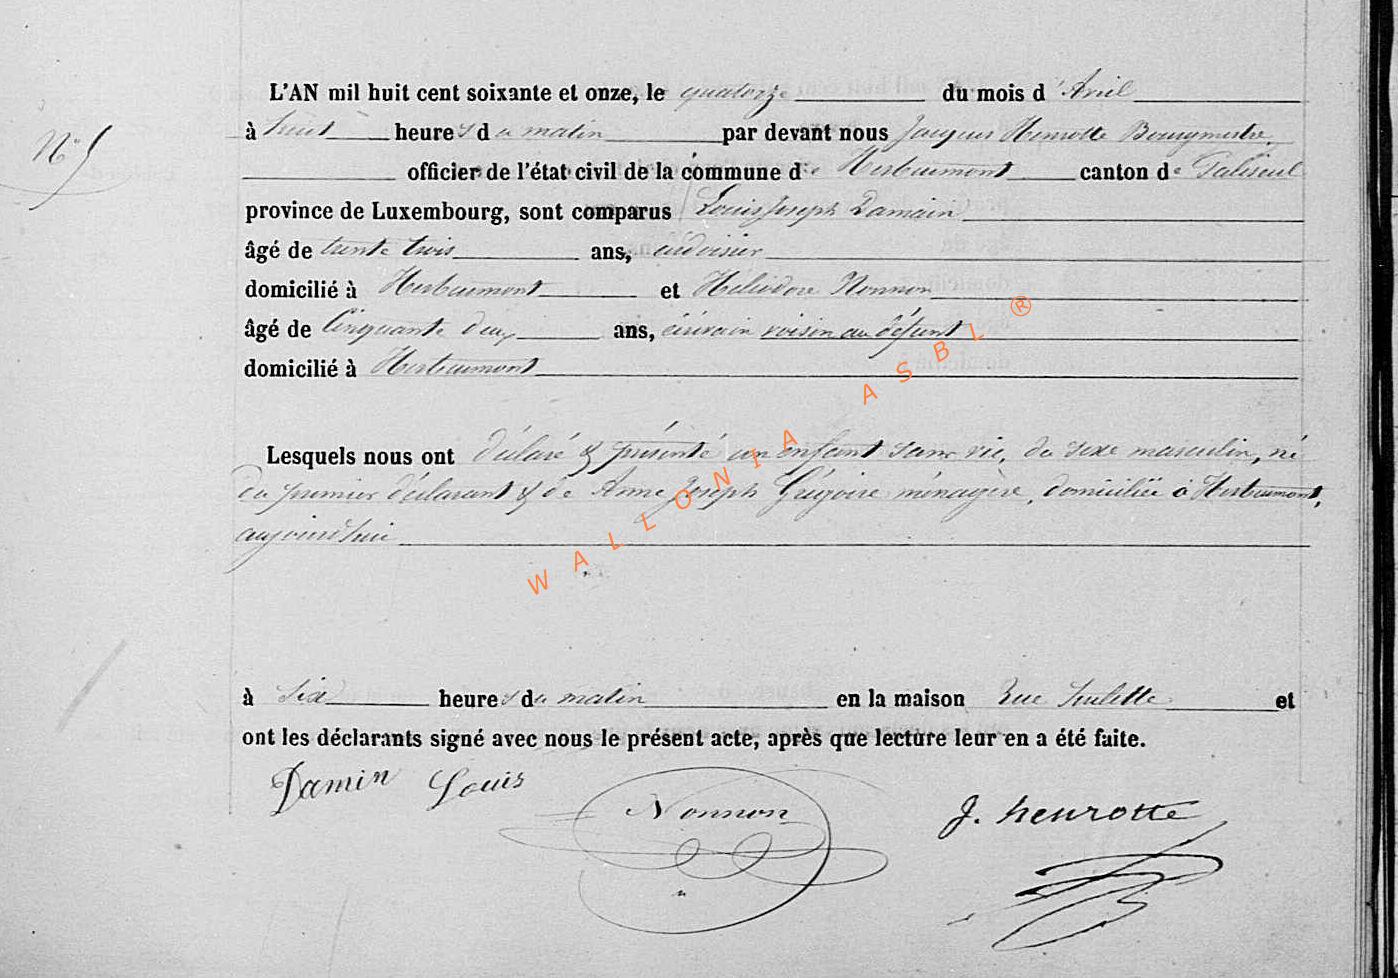 L'AN mil huit cent soixante et onze, le quatorze du mois d'Avril
N° 5
à huit heures du matin par devant nous Jacques Henrotte Bourgmestre,
officier de l'état civil de la commune de Herbeumont canton de Paliseul
province de Luxembourg, sont comparus Louis Joseph Damain
âgé de trente trois ans, ardoisier
domicilié à Herbeumont et Héliodore Nonnon
âgé de Cinquante deux ans, écrivain voisin au défunt
domicilié à Herbeumont
Lesquels nous ont déclaré & présenté un enfant sans vie, du sexe masculin, né
du premier déclarant & de Anne Joseph Grégoire ménagère, domiciliée à Herbeumont,
aujourd'hui
WALLONIA ASBL ®
à Six heures du matin en la maison Rue et
ont les déclarants signé avec nous le présent acte, après que lecture leur en a été faite.
Damin Louis Nonnon J. henrotte